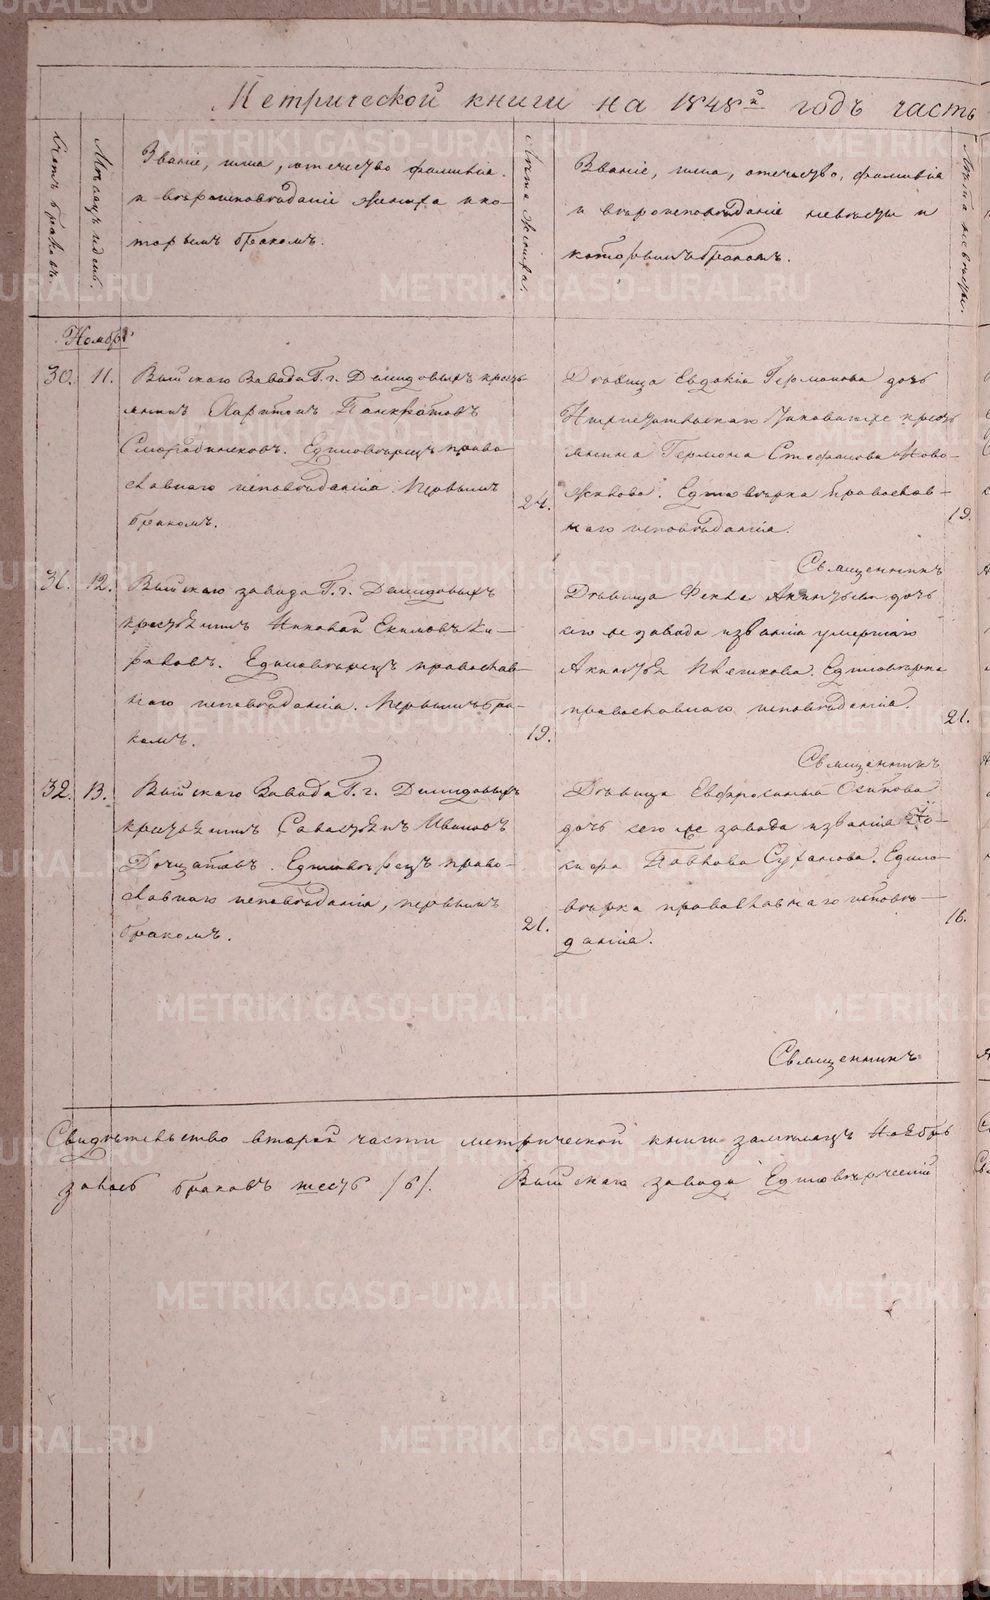 Метрической книги на 1848й годъ часть
Счетъ браковъ.
Месяцъ и день.
Званіе, имя, отечество фамилія
и вѣроисповѣданіе жениха и ко-
торымъ бракомъ.
Лѣта жениха.
Званіе, имя, отечество, фамилія
и вѣроисповѣданіе невѣсты и
которымъ бракомъ.
Лѣта невѣсты.
Ноябрь
30. 11. Выйскаго Завода Г. г. Демидовыхъ кресть-
янинъ Харитонъ Панкратовъ
Смородинсковъ. Единовѣрецъ право-
славнаго исповѣданія. Первымъ
бракомъ.
24.
Дѣвица Евдокія Германова дочь
крестъ
янина Германа Стефанова Ново-
жилова. Единовѣрка православ-
наго исповѣданія.
19.
Священникъ
31. 12. Выйскаго завода Г. г. Демидовыхъ
крестьянинъ Николай Екимовъ Ки-
риловъ. Единовѣрецъ православ-
наго исповѣданія. Первымъ бра-
комъ.
19.
Дѣвица Фекла дочь
сего же завода изъ званія умершаго
Единовѣрка
православнаго исповѣданія.
21.
Священникъ
32. 13. Выйскаго Завода Г. г. Демидовыхъ
крестьянинъ Савастьянъ Ивановъ
Единовѣрецъ право-
славнаго исповѣданія, первымъ
бракомъ.
21.
Дѣвица Евфросинья Осипова
дочь сего же завода изъ званія
Павлова Едино-
вѣрка православнаго исповѣ-
данія.
16.
Священникъ
Свидѣтельство второй части метрической книги за месяцъ Ноябрь
браковъ шесть /6/. Выйскаго завода Единовѣрческой
METRIKI.GASO-URAL.RU